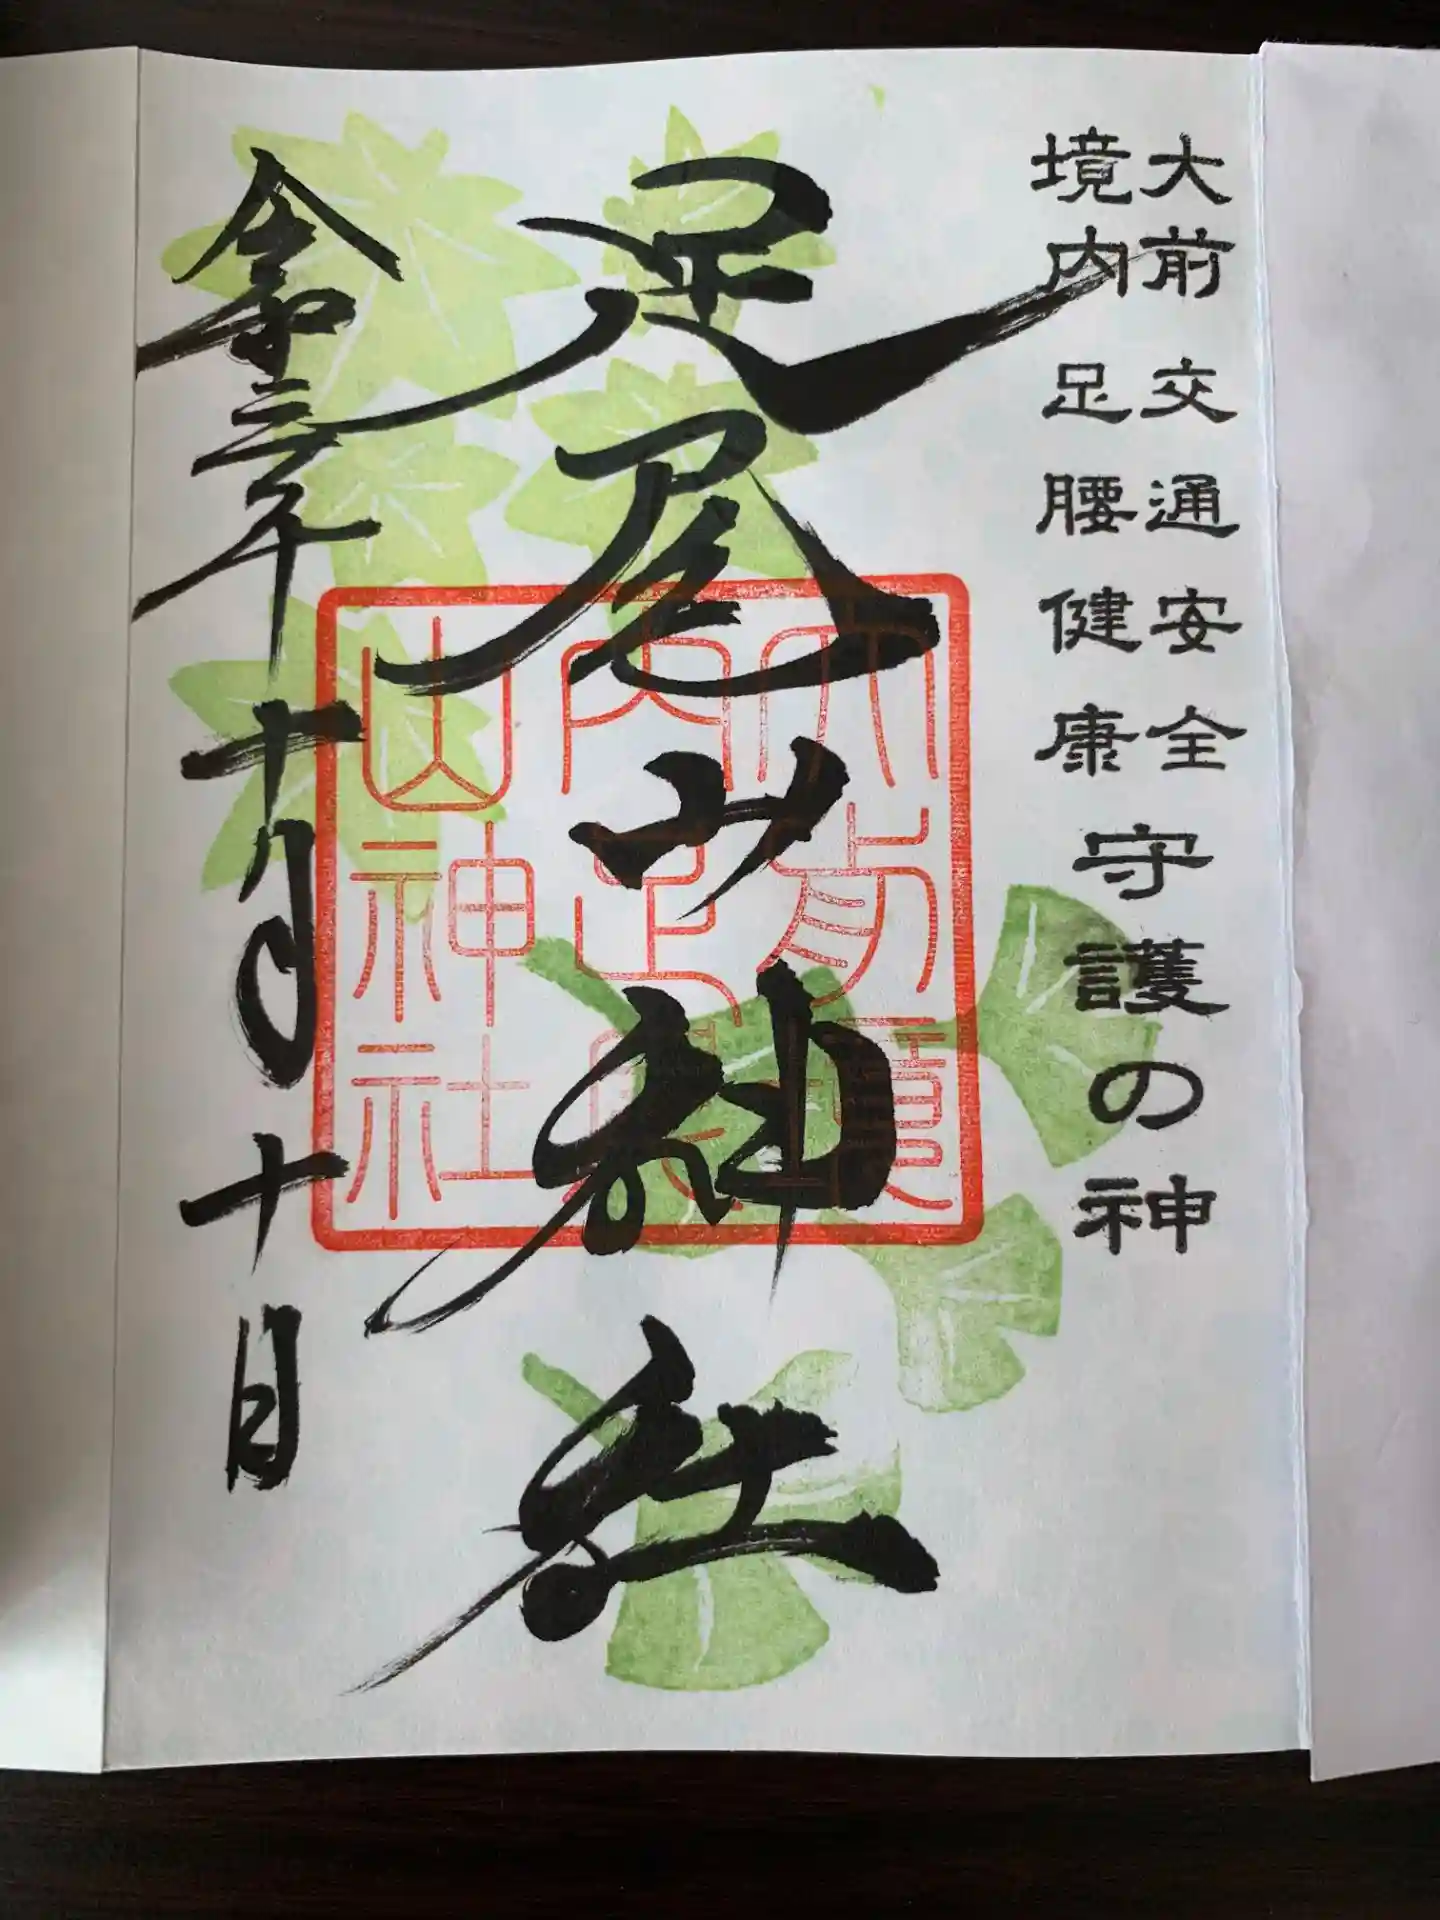 大前 交通安全
境内 足腰健康
守護の神
足尾山神社
大前境
内足尾
山神社
令和三年十月十日